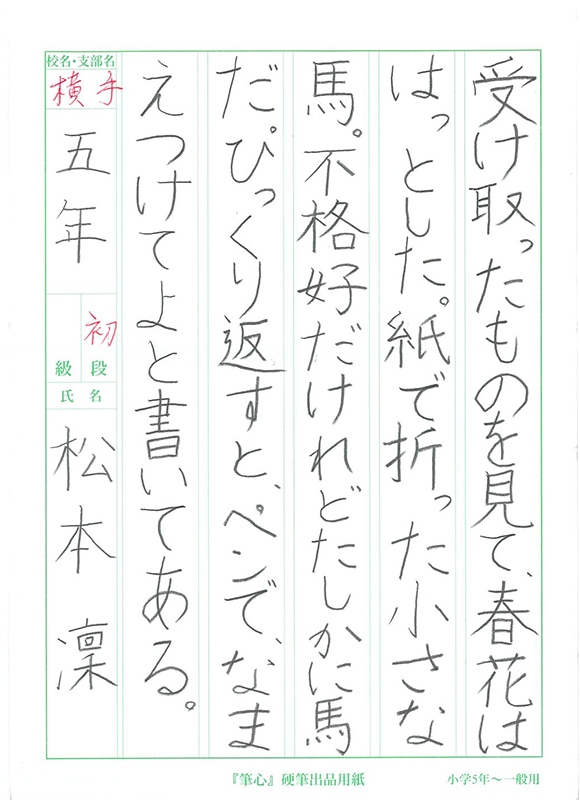 受け取ったものを見て、春花は
はっとした。紙で折った小さな
馬。不格好だけれどたしかに馬
だ。ひっくり返すと、ペンで、なま
えつけてよと書いてある。
校名・支部名
横手
五年
初
級段
氏名
松本 凜
『筆心』硬筆出品用紙
小学5年～一般用